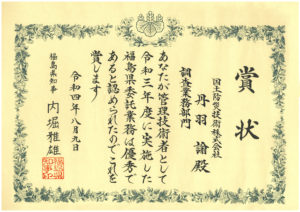 賞状
国土防災技術株式会社
調査業務部門
丹羽諭殿
あなたが管理技術者として
令和三年度に実施した
福島県委託業務は優秀で
あると認められたのでこれを
賞します
令和四年八月九日
福島県知事 内堀雅雄